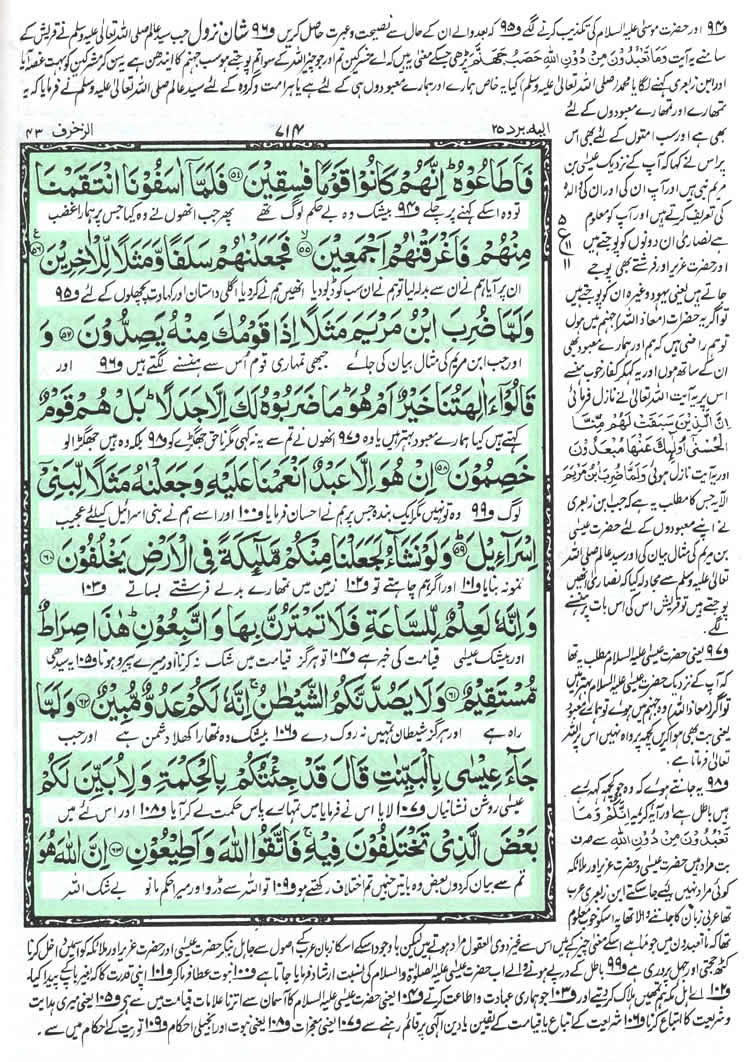 و۹۴ اور حضرت موسٰی علیہ السلام کی تکذیب کرنے لگے و۹۵ کہ بعد والے ان کے حال سے نصیحت و عبرت حاصل کریں و۹۶ شان نزول جب سید عالم صلی اللہ تعالٰی علیہ وسلم نے قریش کے
سامنے یہ آیت وَمَا تَعْبُدُوْنَ مِنْ دُوْنِ اللّٰہِ حَصَبُ جَھَنَّم پڑھی جسکے معنی ہیں کہ اے مشرکین تم اور جو چیز اللہ کے سوا تم پوجتے ہو سب جہنم کا ایندھن ہے یہ سن کر مشرکین کو بہت غصہ آیا
اور ابن زبعری کہنے لگا یا محمد (صلی اللہ تعالٰی علیہ وسلم) کیا یہ خاص ہمارے اور ہمارے معبودوں ہی کے لئے ہے یا ہر امت و گروہ کے لئے سید عالم صلی اللہ تعالٰی علیہ وسلم نے فرمایا کہ یہ
الیہ یرد ۲۵
۷۱۴
الزخرف ۴۳
تمھارے اور تمھارے معبودوں کے لئے
بھی ہے اور سب امتوں کے لئے بھی اس
پر اس نے کہا کہ آپ کے نزدیک عیسٰی بن
مریم نبی ہیں اور آپ ان کی اور ان کی والدہ
کی تعریف کرتے ہیں اور آپ کو معلوم
ہے نصاریٰ ان دونوں کو پوجتے ہیں
اور حضرت عزیر اور فرشتے بھی پوجے
جاتے ہیں یعنی یہود وغیرہ ان کو پوجتے ہیں
تو اگر یہ حضرات (معاذ اللہ) جہنم میں ہوں
تو ہم راضی ہیں کہ ہم اور ہمارے معبود بھی
ان کے ساتھ ہوں اور یہ کہہ کر کفار خوب ہنسے
اس پر یہ آیت اللہ تعالٰی نے نازل فرمائی
اِنَّ الَّذِیْنَ سَبَقَتْ لَھُمْ مِّنَّا
الْحُسْنٰی اُولٰٓئِکَ عَنْھَا مُبْعَدُوْنَ
اور یہ آیت نازل ہوئی وَلَمَّا ضُرِبَ ابْنُ مَرْیَمَ
الآیہ جس کا مطلب یہ ہے کہ جب بن زبعری
نے اپنے معبودوں کے لئے حضرت عیسٰی
بن مریم کی مثال بیان کی اور سید عالم صلی اللہ
تعالٰی علیہ وسلم سے مجادلہ کیا کہ نصاریٰ انھیں
پوجتے ہیں تو قریش اس کی اس بات پر ہنسنے
لگے
و۹۷ یعنی حضرت عیسٰی علیہ السلام مطلب یہ تھا
کہ آپ کے نزدیک حضرت عیسٰی علیہ السلام بہتر ہیں
تو اگر (معاذ اللہ) وہ جہنم میں ہوئے تو ہمارے معبود
یعنی بت بھی ہوا کریں کچھ پرواہ نہیں اس پر اللہ
تعالٰی فرماتا ہے
و۹۸ یہ جانتے ہوئے کہ وہ جو کچھ کہہ رہے
ہیں باطل ہے اور آیہ کریمہ اِنَّکُمْ وَمَا
تَعْبُدُوْنَ مِنْ دُوْنِ اللّٰہِ سے صرف
بت مراد ہیں حضرت عیسٰی و حضرت عزیر اور ملائکہ
کوئی مراد نہیں لیے جا سکتے ابن زبعری عرب
تھا عربی زبان کا جاننے والا تھا یہ اسکو خوب معلوم
فَاَطَاعُوۡهُ‌ؕ اِنَّهُمۡ كَانُوۡا قَوۡمًا فٰسِقِيۡنَ ﴿۵۴﴾ فَلَمَّاۤ اٰسَفُوۡنَا انْتَقَمۡنَا
تو وہ اسکے کہنے پر چلے و۹۴ بیشک وہ بے حکم لوگ تھے پھر جب انھوں نے وہ کیا جس پر ہمارا غضب
مِنۡهُمۡ فَاَغۡرَقۡنٰهُمۡ اَجۡمَعِيۡنَۙ‏ ﴿۵۵﴾ فَجَعَلۡنٰهُمۡ سَلَفًا وَّمَثَلًا لِّلۡاٰخِرِيۡنَ ﴿۵۶﴾
ان پر آیا ہم نے ان سے بدلہ لیا تو ہم نے ان سب کو ڈبو دیا انھیں ہم نے کر دیا اگلی داستان اور کہاوت پچھلوں کے لئے و۹۵
وَلَمَّا ضُرِبَ ابۡنُ مَرۡيَمَ مَثَلًا اِذَا قَوۡمُكَ مِنۡهُ يَصِدُّوۡنَ ﴿۵۷﴾ وَ
اور جب ابن مریم کی مثال بیان کی جائے جبھی تمہاری قوم اُس سے ہنسنے لگتے ہیں و۹۶ اور
قَالُـوۡۤا ءَاٰلِهَتُنَا خَيۡرٌ اَمۡ هُوَ‌ؕ مَا ضَرَبُوۡهُ لَكَ اِلَّا جَدَلًاؕ بَلۡ هُمۡ قَوۡمٌ
کہتے ہیں کیا ہمارے معبود بہتر ہیں یا وہ و۹۷ انھوں نے تم سے یہ نہ کہی مگر ناحق جھگڑے کو و۹۸ بلکہ وہ ہیں جھگڑالو
خَصِمُوۡنَ ﴿۵۸﴾ اِنۡ هُوَ اِلَّا عَبۡدٌ اَنۡعَمۡنَا عَلَيۡهِ وَجَعَلۡنٰهُ مَثَلًا لِّبَنِىۡۤ
لوگ و۹۹ وہ تو نہیں مگر ایک بندہ جس پر ہم نے احسان فرمایا و۱۰۰ اور اسے ہم نے بنی اسرائیل کیلئے عجیب
اِسۡرَآءِيۡلَ ﴿۵۹﴾ وَلَوۡ نَشَآءُ لَجَـعَلۡنَا مِنۡكُمۡ مَّلٰٓٮِٕكَةً فِى الۡاَرۡضِ يَخۡلُفُوۡنَ ﴿۶۰﴾
نمونہ بنایا و۱۰۱ اور اگر ہم چاہتے تو و۱۰۲ زمین میں تمھارے بدلے فرشتے بساتے و۱۰۳
وَاِنَّهٗ لَعِلۡمٌ لِّلسَّاعَةِ فَلَا تَمۡتَرُنَّ بِهَا وَاتَّبِعُوۡنِ‌ؕ هٰذَا صِرَاطٌ
اور بیشک عیسٰی قیامت کی خبر ہے و۱۰۴ تو ہرگز قیامت میں شک نہ کرنا اور میرے پیرو ہونا و۱۰۵ یہ سیدھی
مُّسۡتَقِيۡمٌ ﴿۶۱﴾ وَلَا يَصُدَّنَّكُمُ الشَّيۡطٰنُ‌ۚ اِنَّهٗ لَكُمۡ عَدُوٌّ مُّبِيۡنٌ ﴿۶۲﴾ وَلَمَّا
راہ ہے اور ہرگز شیطان تمہیں نہ روک دے و۱۰۶ بیشک وہ تمھارا کھلا دشمن ہے اور جب
جَآءَ عِيۡسٰى بِالۡبَيِّنٰتِ قَالَ قَدۡ جِئۡتُكُمۡ بِالۡحِكۡمَةِ وَلِاُبَيِّنَ لَكُمۡ
عیسٰی روشن نشانیاں و۱۰۷ لایا اس نے فرمایا میں تمہارے پاس حکمت لے کر آیا و۱۰۸ اور اس لئے میں
بَعۡضَ الَّذِىۡ تَخۡتَلِفُوۡنَ فِيۡهِ‌ۚ فَاتَّقُوا اللّٰهَ وَاَطِيۡعُوۡنِ ﴿۶۳﴾ اِنَّ اللّٰهَ هُوَ
تم سے بیان کر دوں بعض وہ باتیں جنمیں تم اختلاف رکھتے ہو و۱۰۹ تو اللہ سے ڈرو اور میرا حکم مانو بے شک اللہ
تھا کہ ما تعبدون میں جو ما ہے اسکے معنی چیز کے ہیں اس سے غیر ذوی العقول مراد ہوتے ہیں لیکن باوجود اسکے اسکا زبان عرب کے اصول سے جاہل بنکر حضرت عیسٰی اور حضرت عزیر اور ملائکہ کو اسمیں داخل کرنا
کٹھ حجتی اور جہل پروری ہے و۹۹ باطل کے درپے ہونے والے اب حضرت عیسٰی علیہ الصلوٰۃ والسلام کی نسبت ارشاد فرمایا جاتا ہے و۱۰۰ نبوت عطا فرما کر و۱۰۱ اپنی قدرت کا کہ بغیر باپ کے پیدا کیا۔
و۱۰۲ اے اہل مکہ ہم تمھیں ہلاک کر دیتے اور و۱۰۳ جو ہماری عبادت و اطاعت کرتے و۱۰۴ یعنی حضرت عیسٰی علیہ السلام کا آسمان سے اترنا علامات قیامت میں سے ہے و۱۰۵ یعنی میری ہدایت
و شریعت کا اتباع کرنا و۱۰۶ شریعت کے اتباع یا قیامت کے یقین یا دین الٰہی پر قائم رہنے سے و۱۰۷ یعنی معجزات و۱۰۸ یعنی نبوت اور انجیلی احکام و۱۰۹ توریت کے احکام میں سے۔